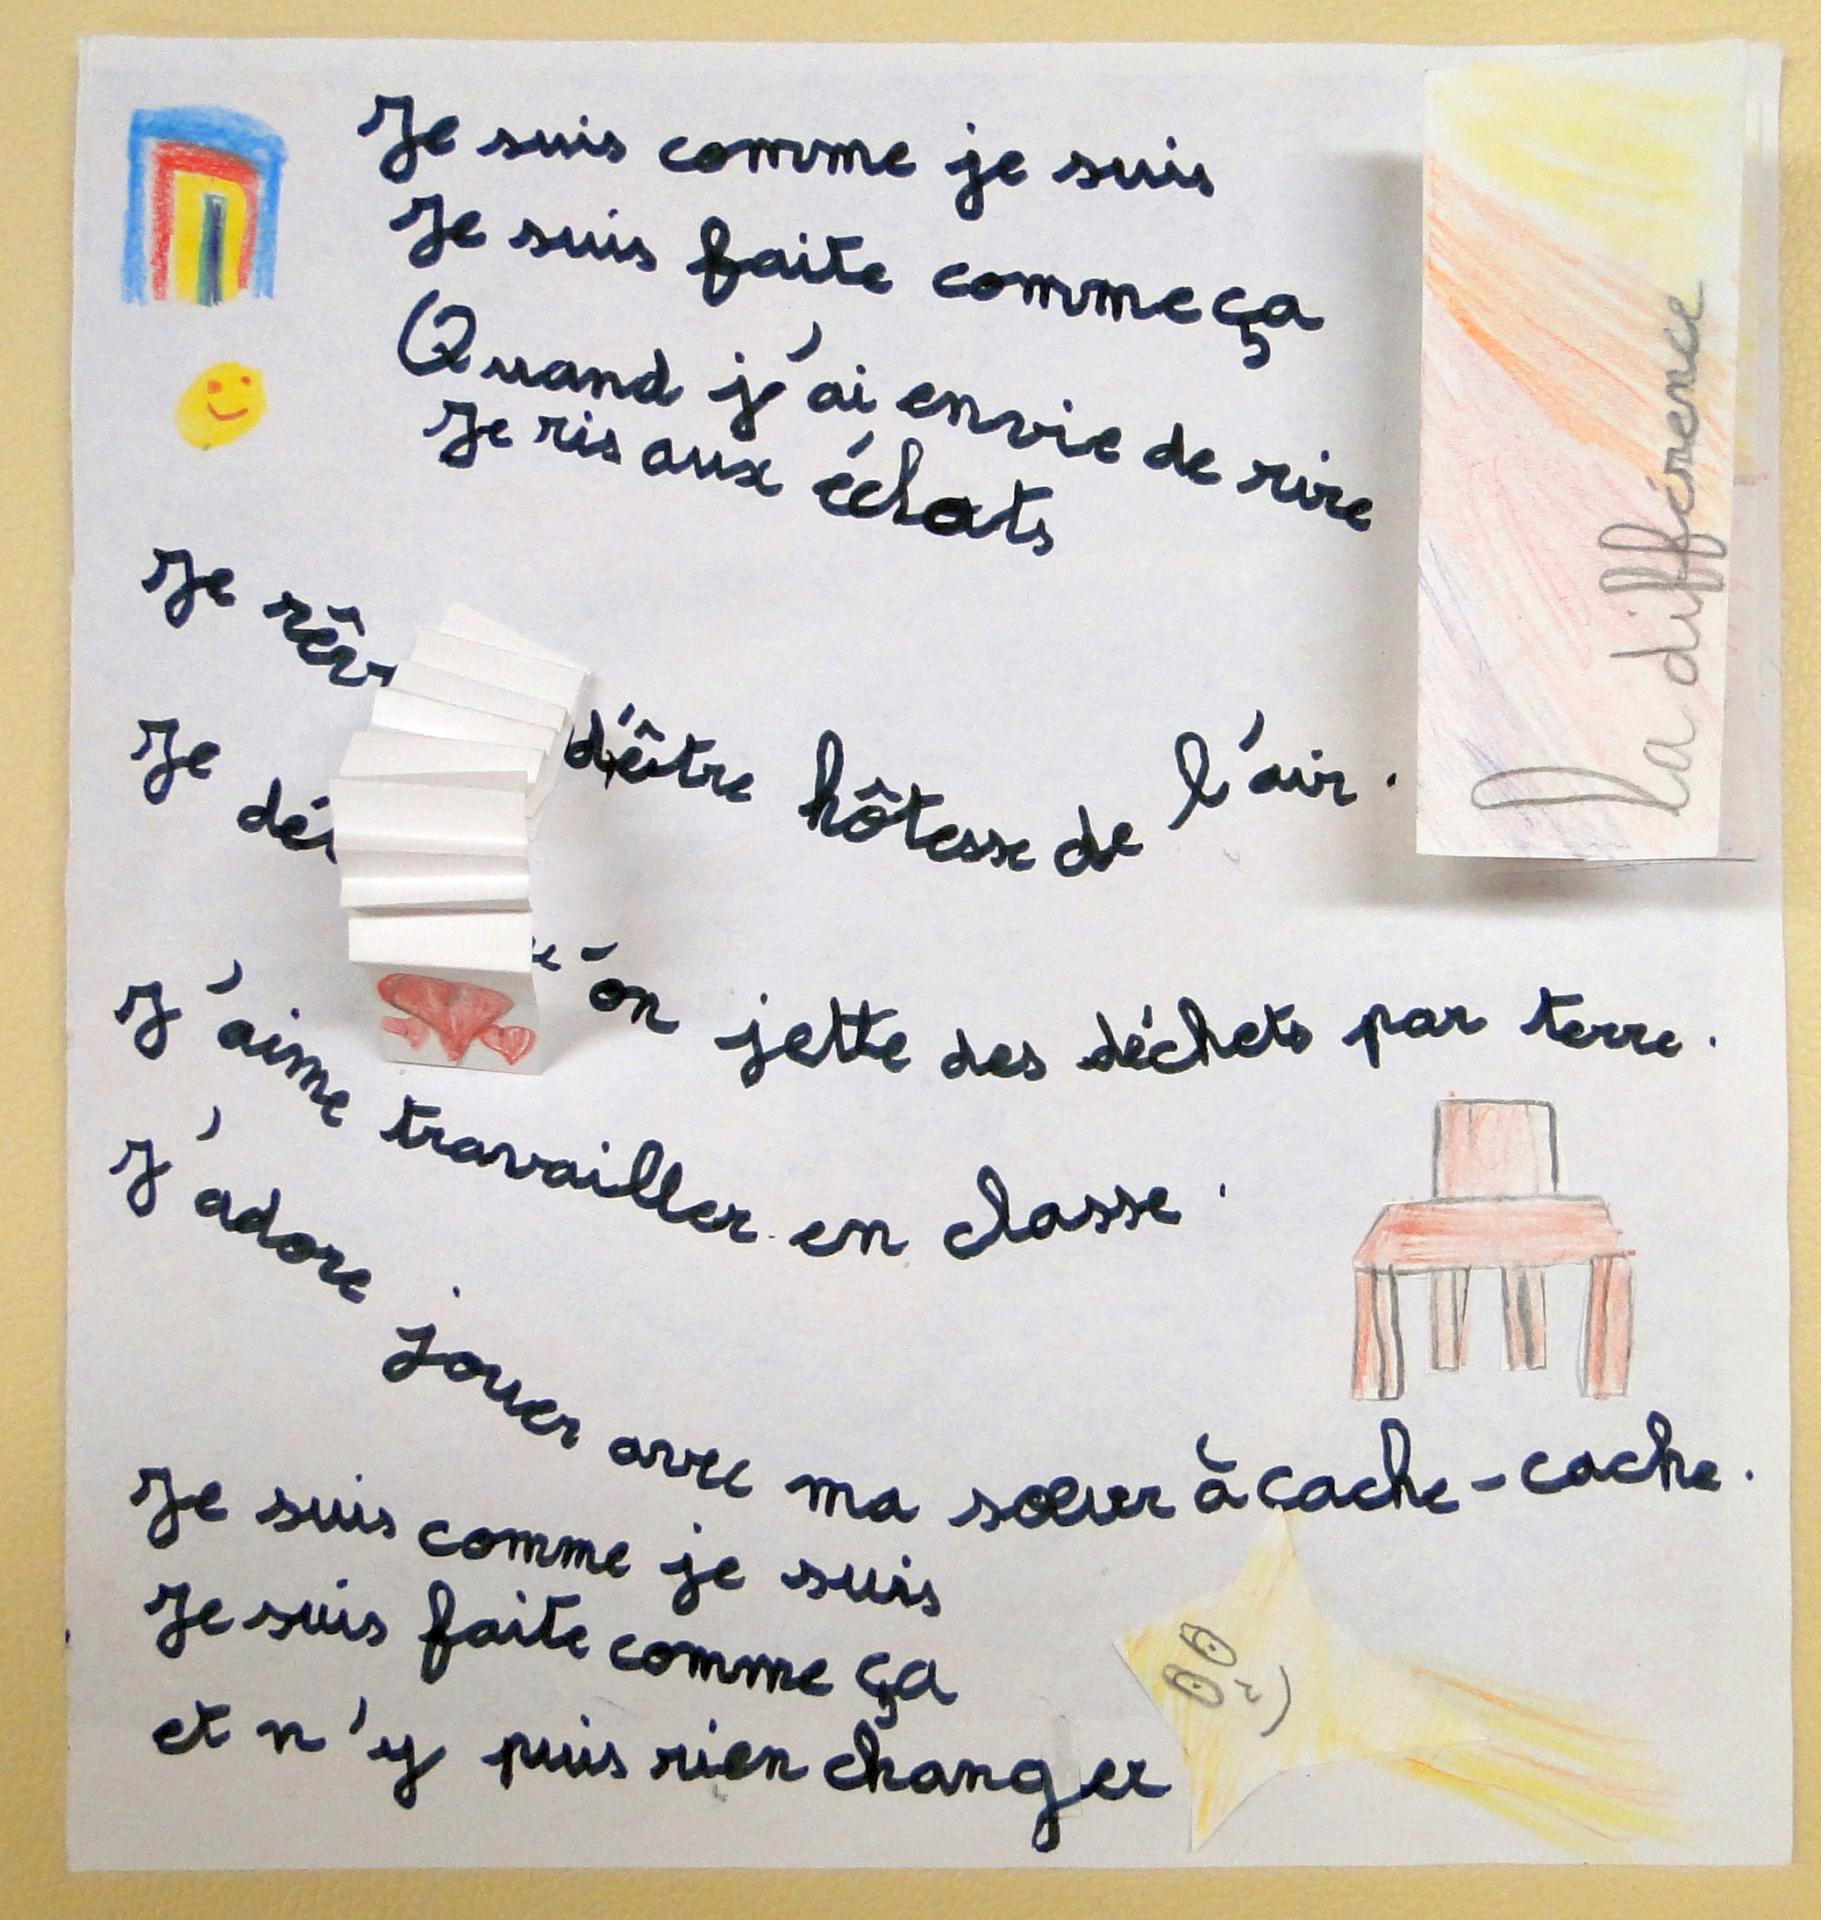 Je suis comme je suis
Je suis faite comme ça
Quand j'ai envie de rire
Je ris aux éclats
Je rêv d'être hôtesse de l'air.
Je dé on jette des déchets par terre.
J'aime travailler en classe.
J'adore jouer avec ma sœur à cache-cache.
Je suis comme je suis
Je suis faite comme ça
et n'y puis rien changer
la différence